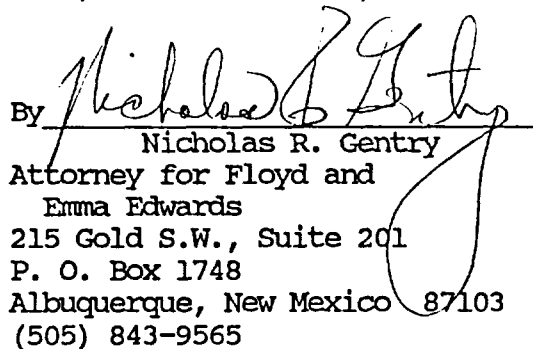 By Nicholas R Gentry
Nicholas R. Gentry
Attorney for Floyd and
Emma Edwards
215 Gold S.W., Suite 201
P. O. Box 1748
Albuquerque, New Mexico 87103
(505) 843-9565